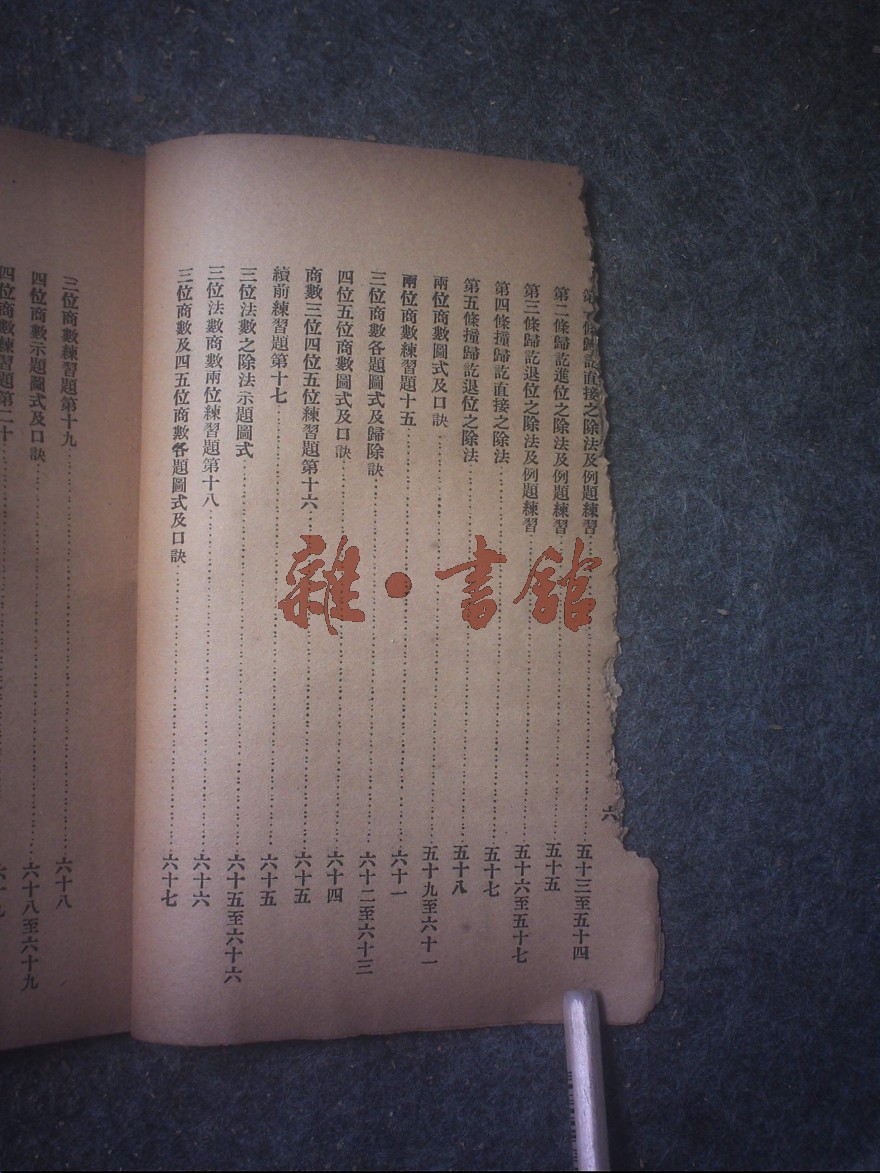 第一條歸訖直接之除法及例題練習……五十三至五十四
第二條歸訖進位之除法及例題練習……五十五
第三條歸訖退位之除法及例題練習……五十六至五十七
第四條撞歸訖直接之除法……五十七
第五條撞歸訖退位之除法……五十八
兩位商數圖式及口訣……五十九至六十一
兩位商數練習題十五……六十一
三位商數各題圖式及歸除訣……六十二至六十三
四位五位商數圖式及口訣……六十四
商數三位四位五位練習題第十六……六十五
續前練習題第十七……六十五
三位法數之除法示題圖式……六十五至六十六
三位法數商數兩位練習題第十八……六十六
三位商數及四五位商數各題圖式及口訣……六十七
六
三位商數練習題第十九……六十八
四位商數示題圖式及口訣……六十八至六十九
四位商數練習題第二十……六十九
雜·書館